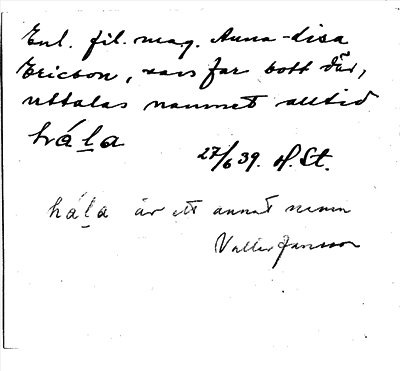 Enl. fil. mag. Anna-Lisa
Ericson, vars far bott där,
uttalas namnet alltid
hála
27/6 39. H. St.
hála är ett annat namn
Valter Jansson